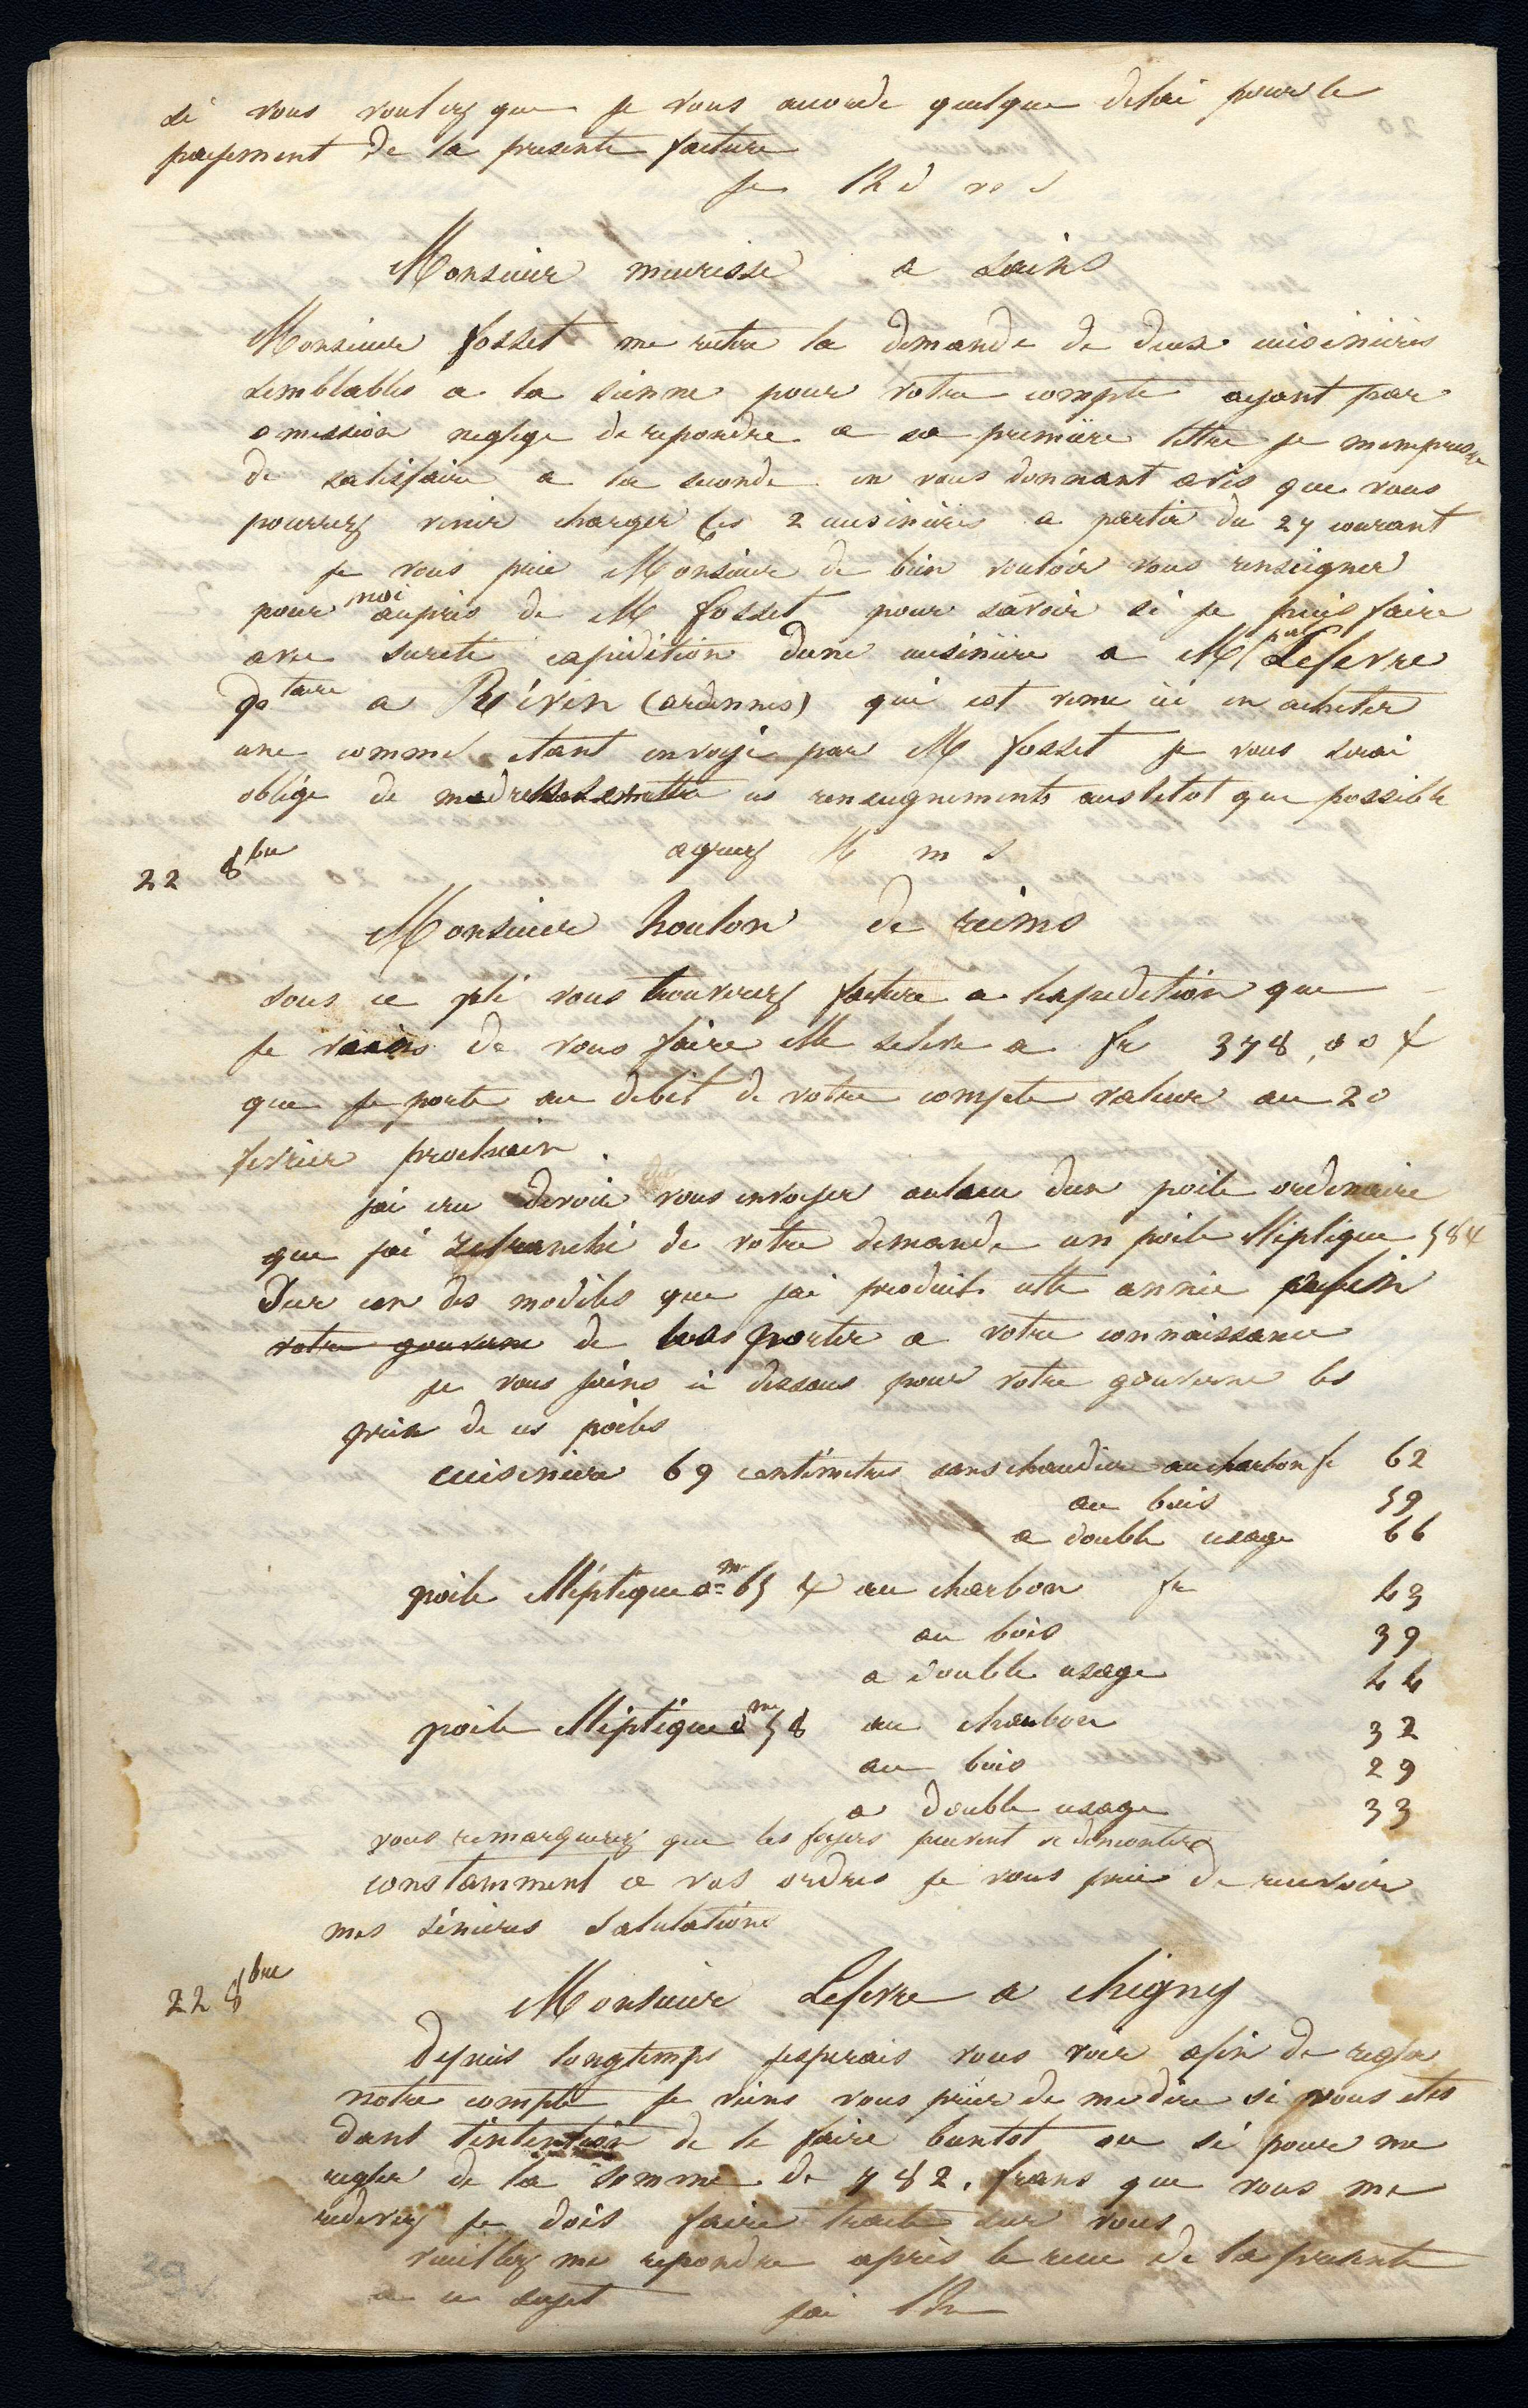 si vous voulez que je vous accorde quelque delai pour le
payement de la presente facture
je
Monsieur meurisse a sains
Monsieur fosset me reitre la demande de deux cuisinieres
semblables a la sienne pour votre compte ayant par
omission neglige de repondre a sa premiere lettre je mempresse
de satisfaire a la seconde en vous donnant avis que vous
pourrez venir charger les 2 cuisinieres a partir du 27 courant
je vous prie Monsieur de bien vouloir vous renseigner
pour moi aupres de M fosset pour savoir si je puis faire
avec sureté expedition dune cuisiniere a M Lefevre
a Révin (ardennes) qui est venu ici en acheter
une comme etant envoyé par M fosset je vous serai
obligé de ces renseignements ausitot que possible
agreez M m s
22 8bre
Monsieur houlon de reims
sous ce pli vous trouverez facture a lexpedition que
je viens de vous faire elle seleve a fr 378,00
que je porte au debit de votre compte valeur au 20
fevrier prochain
jai cru devoir vous envoyer aulieu dun poile ordinaire
que jai retranché de votre demande un poile elliptique 58
sur un des modeles que jai produit cette année afin
votre gouverne de les porter a votre connaissance
je vous joins ci dessous pour votre gouverne les
prix de ces poiles
cuisiniere 69 centimetres sans chaudiere au charbon fr 62
au bois 59
a double usage 66
poile elliptique 0m 65 au charbon fr 43
au bois 39
a double usage 44
poile elliptique 0m 58 au charbon 32
au bois 29
a double usage 33
vous remarquerez que les foyers peuvent se demonter
constamment a vos ordres je vous prie de recevoir
mes sinceres salutations
22 8bre
Monsieur Lefevre a chigny
Depuis longtemps jesperais vous voir afin de regler
notre compte je viens vous prier de me dire si vous etes
dans lintention de le faire bientot ou si pour me
regler de la somme de 782. frans que vous me
redevez je dois faire traite sur vous
veuillez me repondre apres le recue de la presente
a ce sujet jai
39